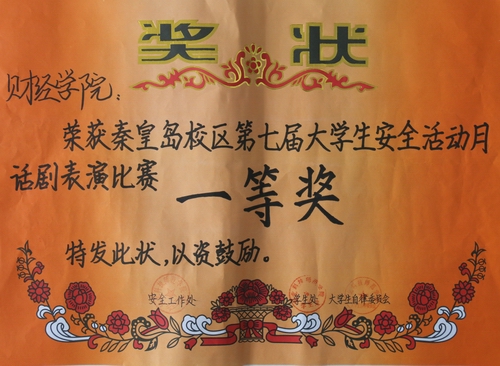 奖状
财经学院：
荣获秦皇岛校区第七届大学生安全活动月
话剧表演比赛 一等奖
特发此状，以资鼓励。
安全工作处 学生处 大学生自律委员会